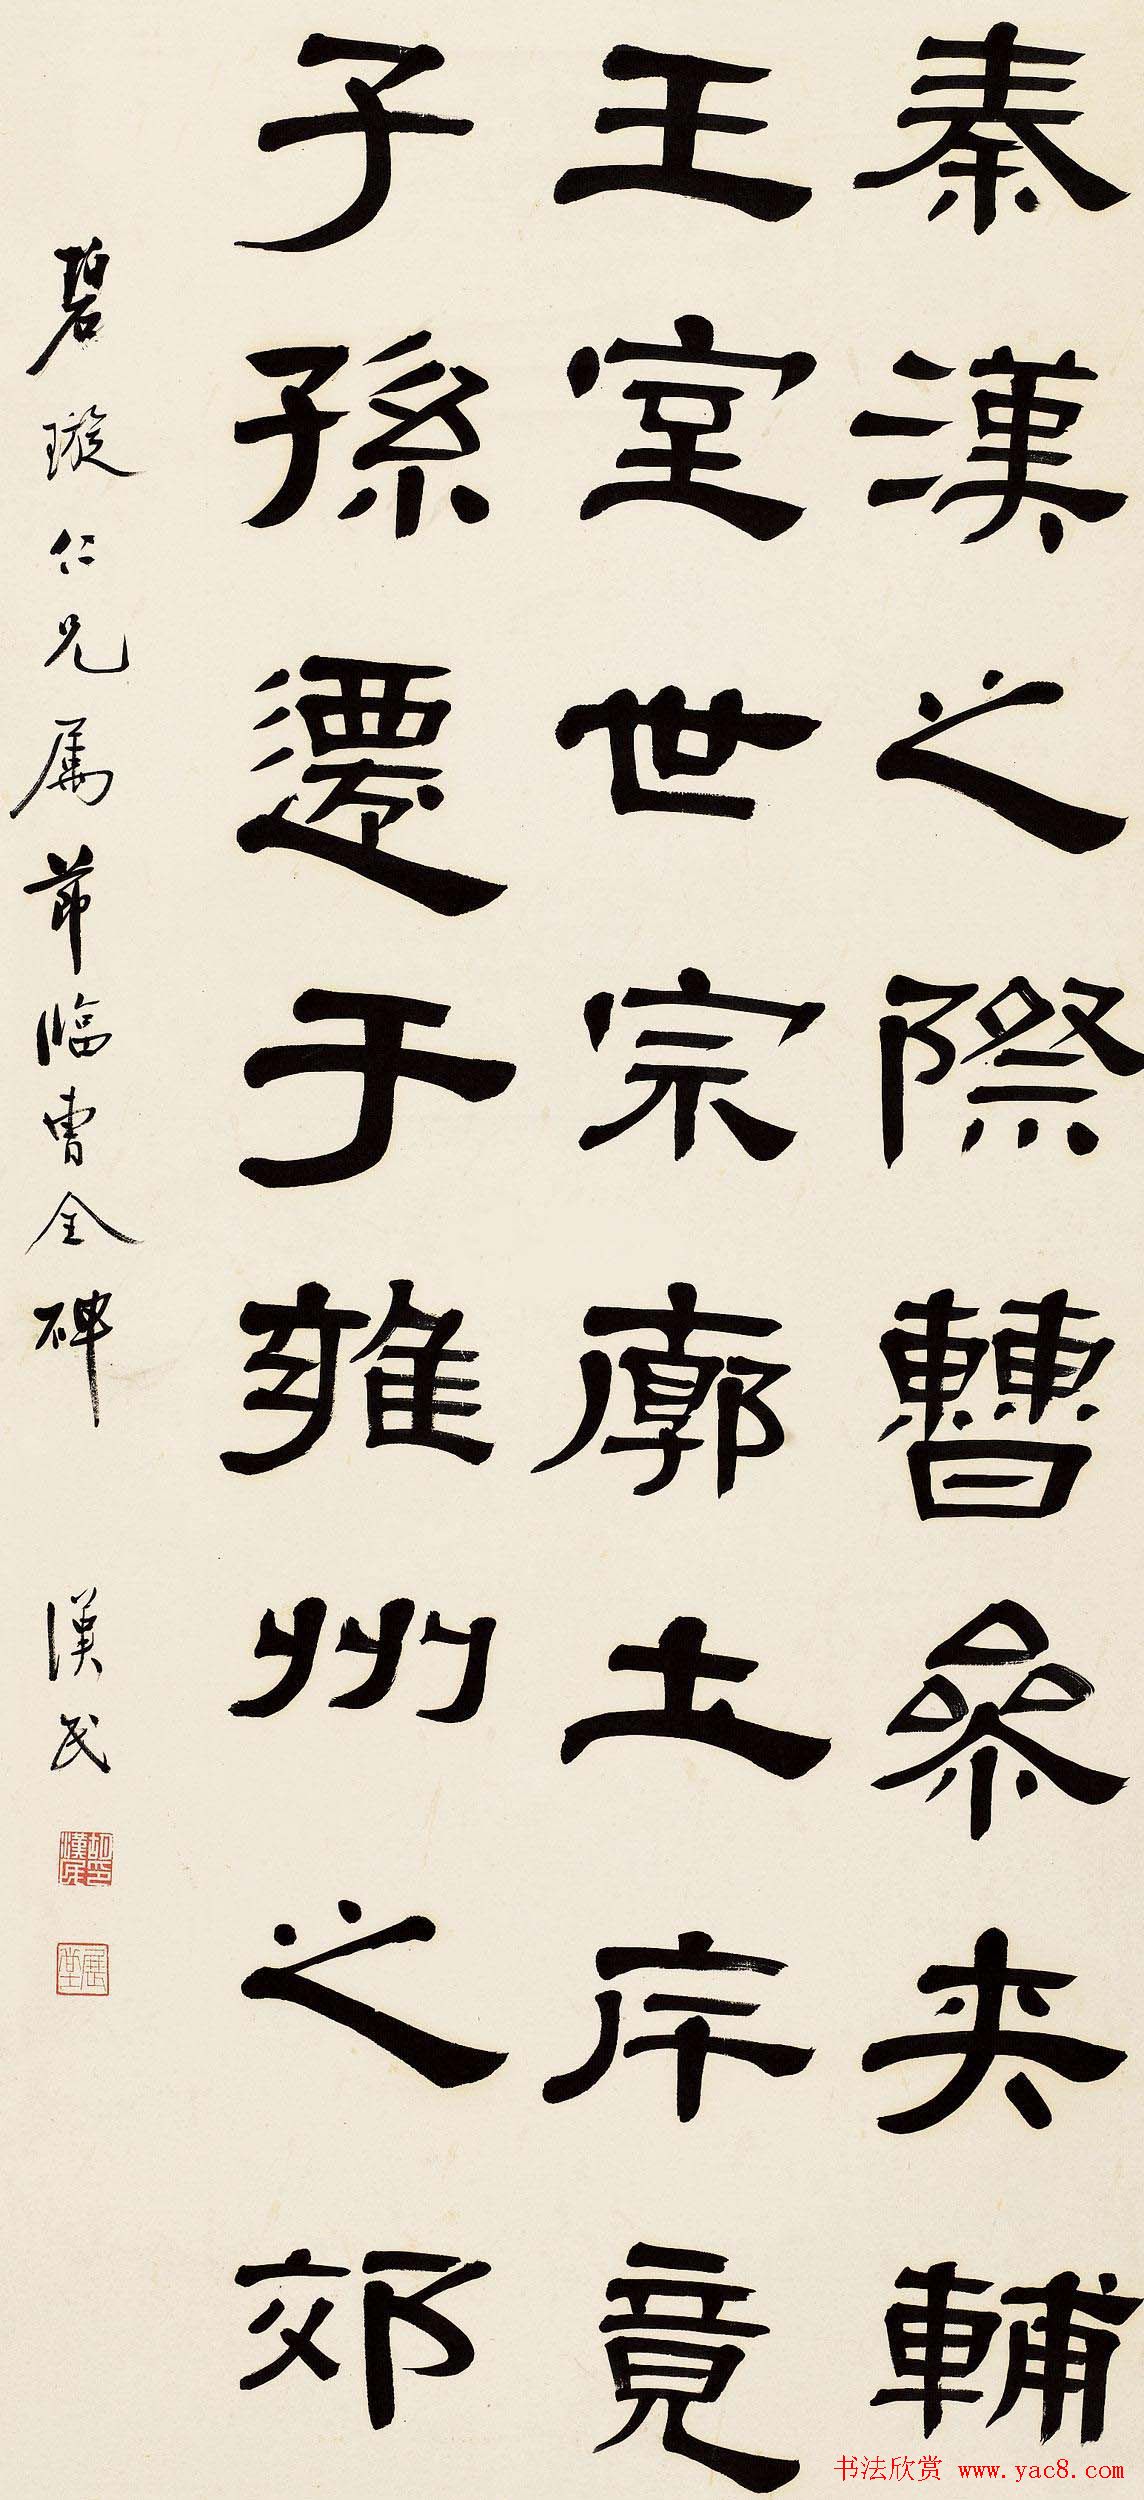 秦漢之際曹參夾輔
王室世宗廓土斥竟
子孫遷于雍州之郊
碧璇仁兄属節臨曹全碑 漢民
胡漢民印
展堂
书法欣赏 www.yac8.com